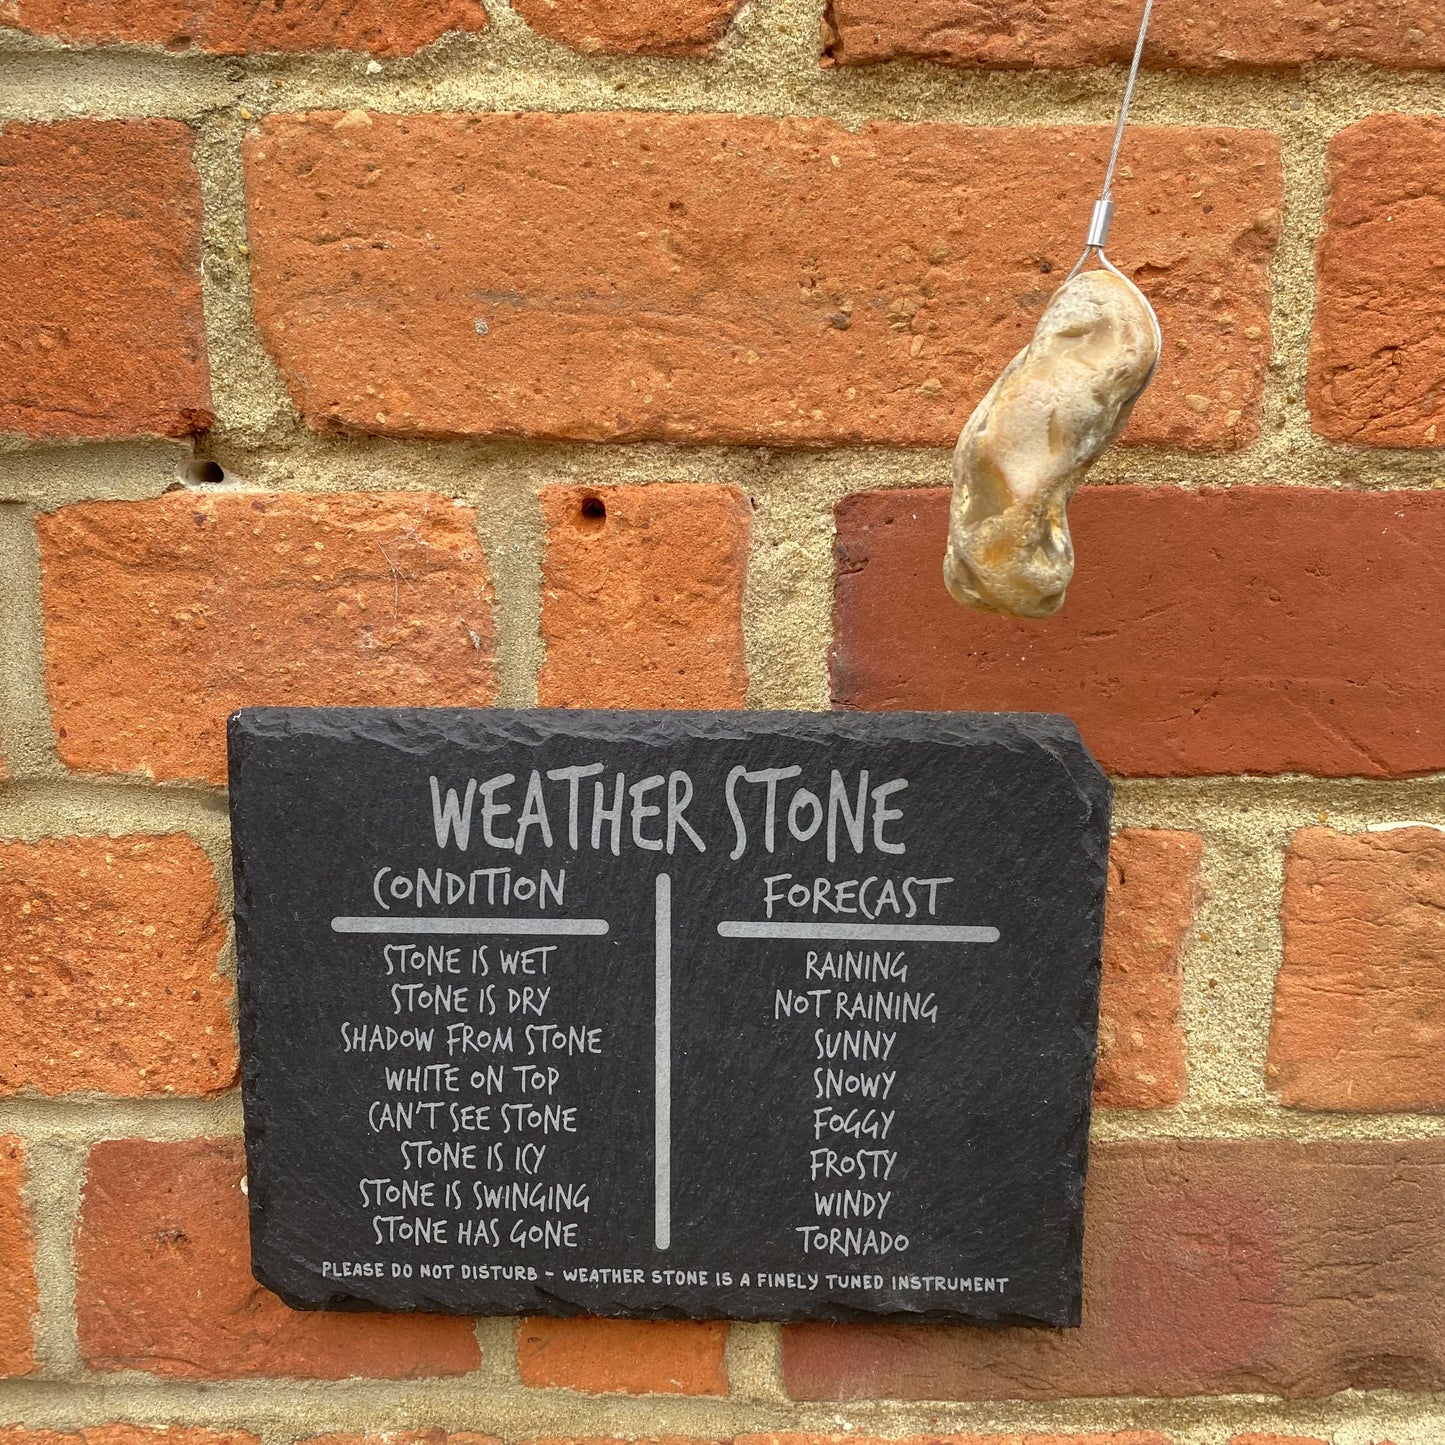 WEATHER STONE
CONDITION FORECAST
STONE IS WET RAINING
STONE IS DRY NOT RAINING
SHADOW FROM STONE SUNNY
WHITE ON TOP SNOWY
CAN'T SEE STONE FOGGY
STONE IS ICY FROSTY
STONE IS SWINGING WINDY
STONE HAS GONE TORNADO
PLEASE DO NOT DISTURB - WEATHER STONE IS A FINELY TUNED INSTRUMENT